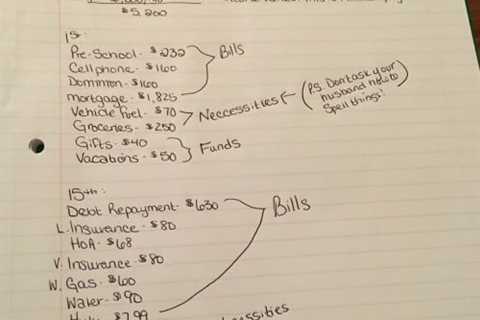 $5,200
1st:
Pre-School - $232
Bills
Cellphone - $160
Dominion - $160
mortgage - $1,825
Vehicle Fuel - $70
Neccessities
(P.S. Dont ask your
husband how to
Spell things!)
Groceries - $250
Gifts - $40
Funds
Vacations - $50
15th:
Debt Repayment - $630
Bills
L. Insurance - $80
HOA - $68
V. Insurance - $80
W. Gas - $60
Water - $90
$7.99